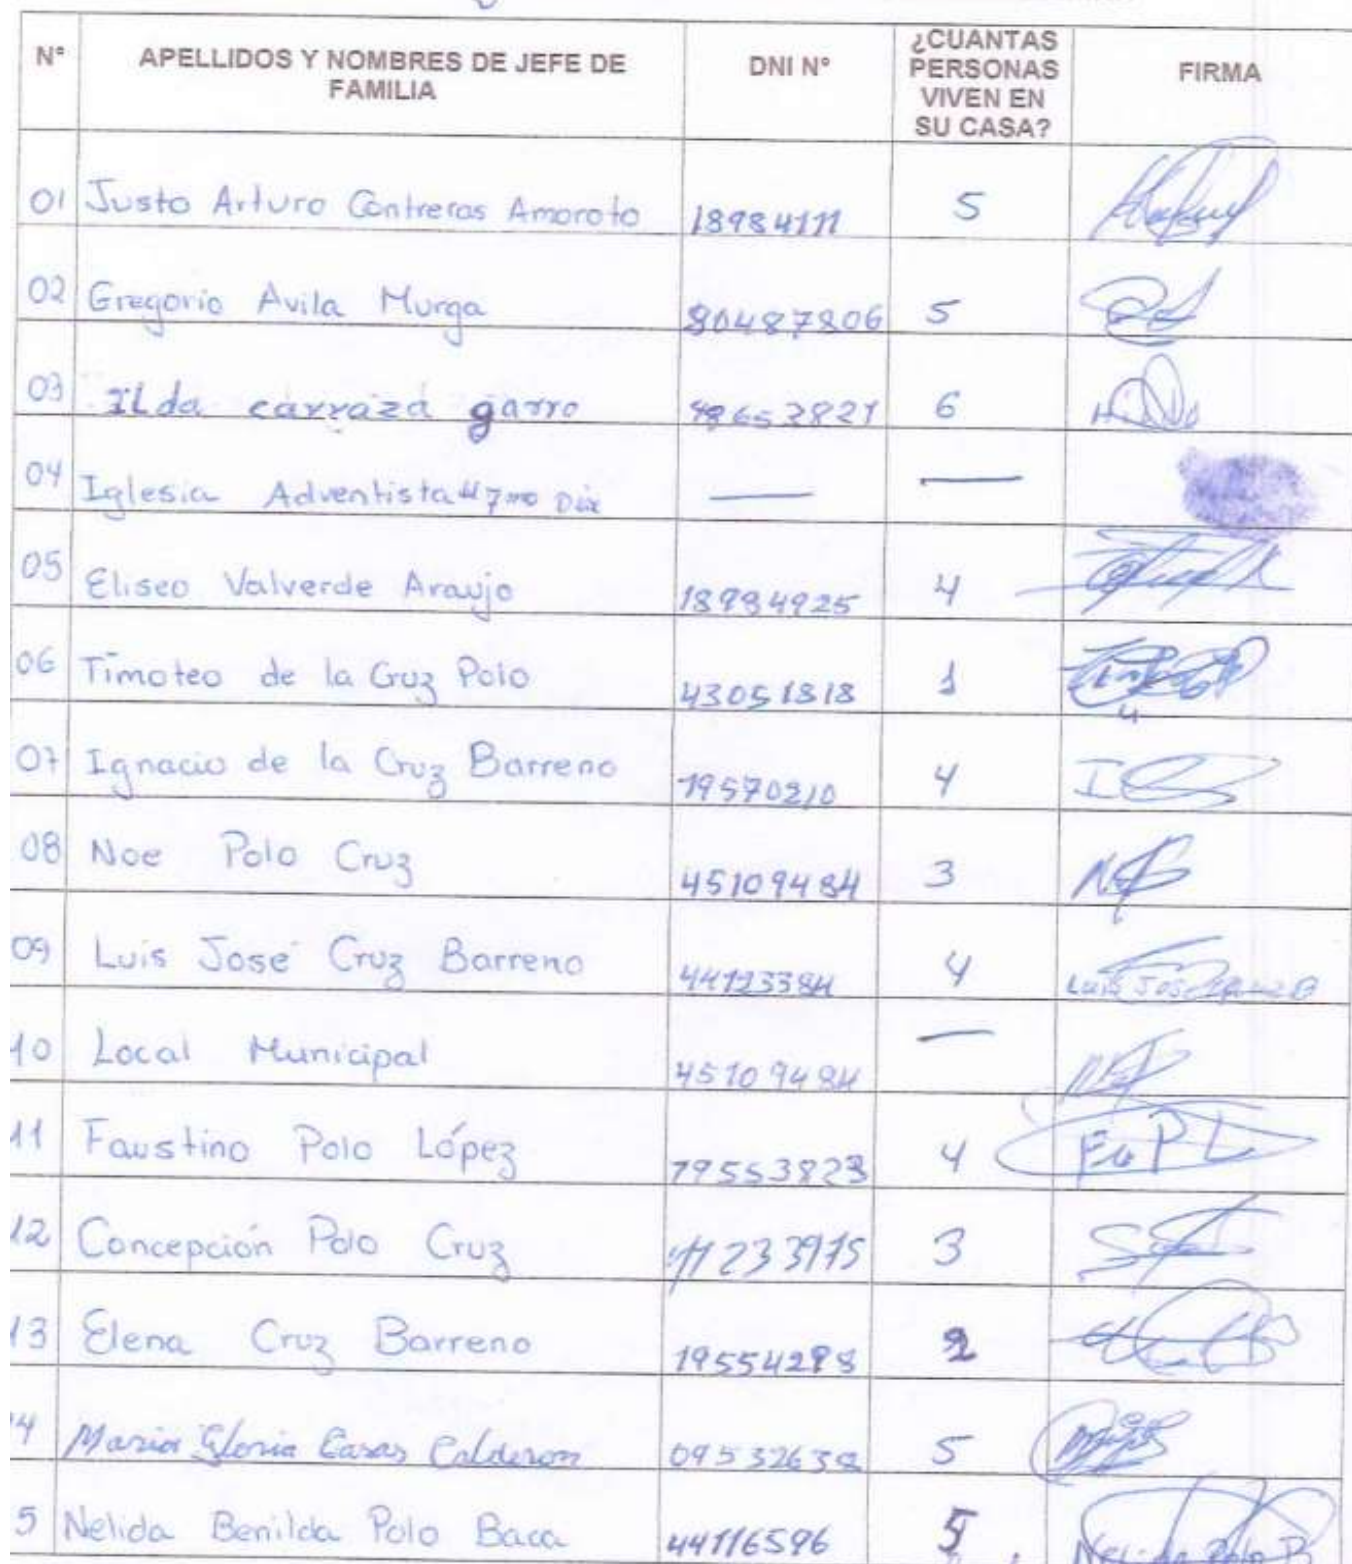 N° APELLIDOS Y NOMBRES DE JEFE DE FAMILIA DNI N° ¿CUANTAS PERSONAS VIVEN EN SU CASA? FIRMA
01 Justo Arturo Contreras Amoroto 18984111 5
02 Gregorio Avila Murga 80487806 5
03 ILda carraza garro 48653821 6
04 Iglesia Adventista 7mo Dia — —
05 Eliseo Valverde Araujo 18984925 4
06 Timoteo de la Cruz Polo 43051818 1
07 Ignacio de la Cruz Barreno 19570210 4
08 Noe Polo Cruz 45109484 3
09 Luis José Cruz Barreno 44123384 4
10 Local Municipal 45109484 —
11 Faustino Polo López 19553823 4 Fa P L
12 Concepción Polo Cruz 3
13 Elena Cruz Barreno 19554298 2
14 Maria Gloria Casas Calderon 09532638 5
5 Nelida Benilda Polo Baca 44116596 5 Nelida Polo B